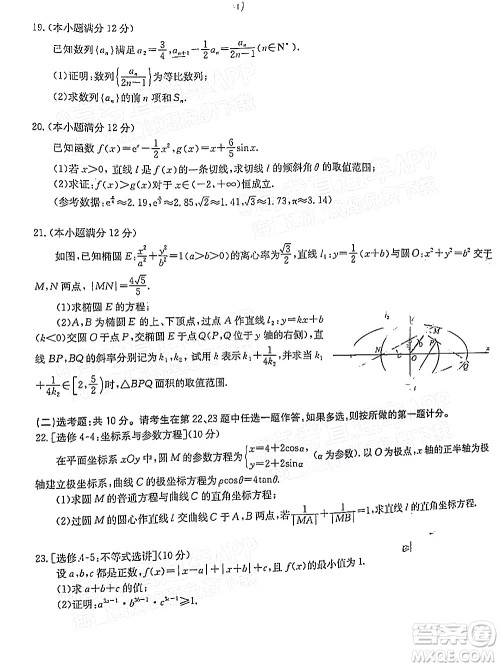 19.(本小题满分12分)
已知数列{aₙ}满足a₂=3/4, aₙ₊₁/(2n+1)-1/2·aₙ/(2n-1)=0(n∈N*).
(1)证明:数列{aₙ/(2n-1)}为等比数列;
(2)求数列{aₙ}的通项和Sₙ.
20.(本小题满分12分)
已知函数f(x)=eˣ-1/2x², g(x)=x+6/5.
(1)若x>0,直线l是f(x)的一条切线,求切线l的倾斜角的取值范围;
(2)求证:f(x)<g(x)对于x∈(-2,+∞)恒成立.
√2≈1.41,√3≈1.73,π≈3.14)
21.(本小题满分12分)
如图,已知椭圆E:x²/a²+y²/b²=1(a>b>0)的离心率为√3/2,直线l₁:y=1/2(x+b)与圆O:x²+y²=b²交于
M,N两点,|MN|=4√5/5.
(1)求椭圆E的方程;
(2)A,B为椭圆E的上、下顶点,过点A的直线l₂:y=kx+b
(k<0)交圆O于点P,交椭圆于点Q(P,Q位于y轴的右侧),直
线BP,BQ的斜率分别记为k₁,k₂,试用k表示k₁+1/(4k₂),并求当k₁
+1/(4k₂)∈[2,5/2)时,△BPQ面积的取值范围.
l₂
y
M
N
O
Q
x
(二)选考题:共10分。请考生在第22,23题中任选一题作答,如果多做,则按所做的第一题计分。
22.[选修4-4:坐标系与参数方程](10分)
在平面坐标系xOy中,圆M的参数方程为{x=4+2cosα, y=2sinα(α为参数),以坐标原点O为极点,x轴的正半轴为极
轴建立极坐标系,曲线C的极坐标方程为ρcosθ=4tanθ.
(1)求圆M的普通方程与曲线C的直角坐标方程;
(2)过圆M的圆心作直线l交曲线C于A,B两点,若1/|MA|+1/|MB|=1,求直线l的直角坐标方程.
23.[选修4-5:不等式选讲](10分)
设a,b,c都是正数,f(x)=|x-a|+|x+b|+c的最小值为1.
(1)求a+b+c的值;
答案圈
MXQE.COM